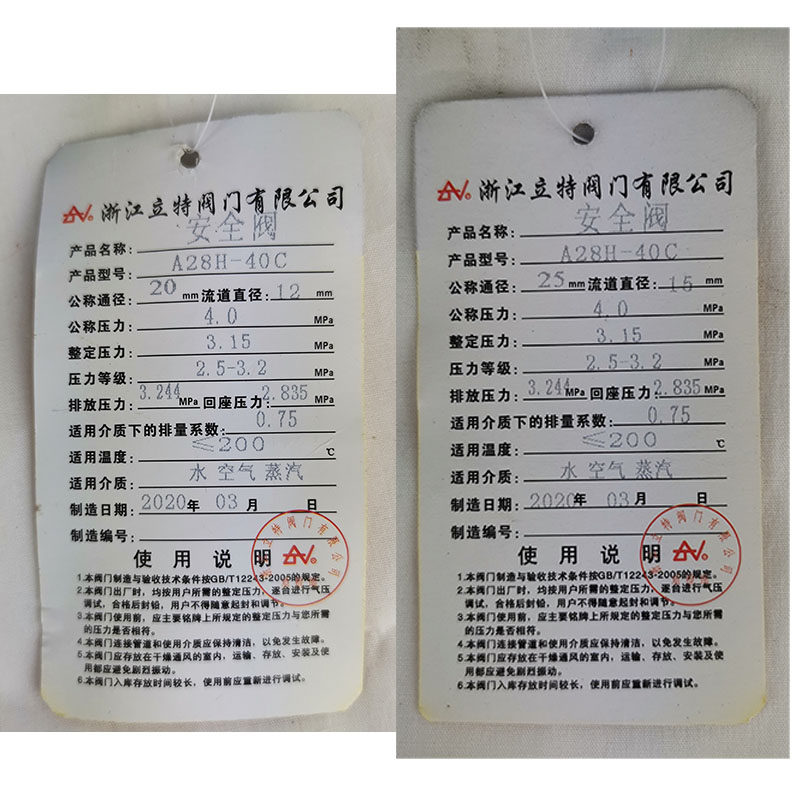 浙江立特阀门有限公司
产品名称：安全阀
产品型号：A28H-40C
公称通径：20mm 流道直径：12mm
公称压力：4.0MPa
整定压力：3.15MPa
压力等级：2.5-3.2MPa
排放压力：3.244MPa 回座压力：2.835MPa
适用介质下的排量系数：0.75
适用温度：≤200℃
适用介质：水 空气 蒸汽
制造日期：2020年03月 日
制造编号：
使用说明
1.本阀门制造与验收技术条件按GB/T12243-2005的规定。
2.本阀门出厂时，均按用户所需的整定压力，逐台进行气压
调试，合格后封铅，用户不得随意起封和调节。
3.本阀门使用前，应主要铭牌上所规定的整定压力与您所需
的压力是否相符。
4.本阀门连接管道和使用介质应保持清洁，以免发生故障。
5.本阀门应存放在干燥通风的室内，运输、存放、安装及使
用都应避免剧烈振动。
6.本阀门入库存放时间较长，使用前应重新进行调试。
浙江立特阀门有限公司
产品名称：安全阀
产品型号：A28H-40C
公称通径：25mm 流道直径：15mm
公称压力：4.0MPa
整定压力：3.15MPa
压力等级：2.5-3.2MPa
排放压力：3.244MPa 回座压力：2.835MPa
适用介质下的排量系数：0.75
适用温度：≤200℃
适用介质：水 空气 蒸汽
制造日期：2020年03月 日
制造编号：
使用说明
1.本阀门制造与验收技术条件按GB/T12243-2005的规定。
2.本阀门出厂时，均按用户所需的整定压力，逐台进行气压
调试，合格后封铅，用户不得随意起封和调节。
3.本阀门使用前，应主要铭牌上所规定的整定压力与您所需
的压力是否相符。
4.本阀门连接管道和使用介质应保持清洁，以免发生故障。
5.本阀门应存放在干燥通风的室内，运输、存放、安装及使
用都应避免剧烈振动。
6.本阀门入库存放时间较长，使用前应重新进行调试。